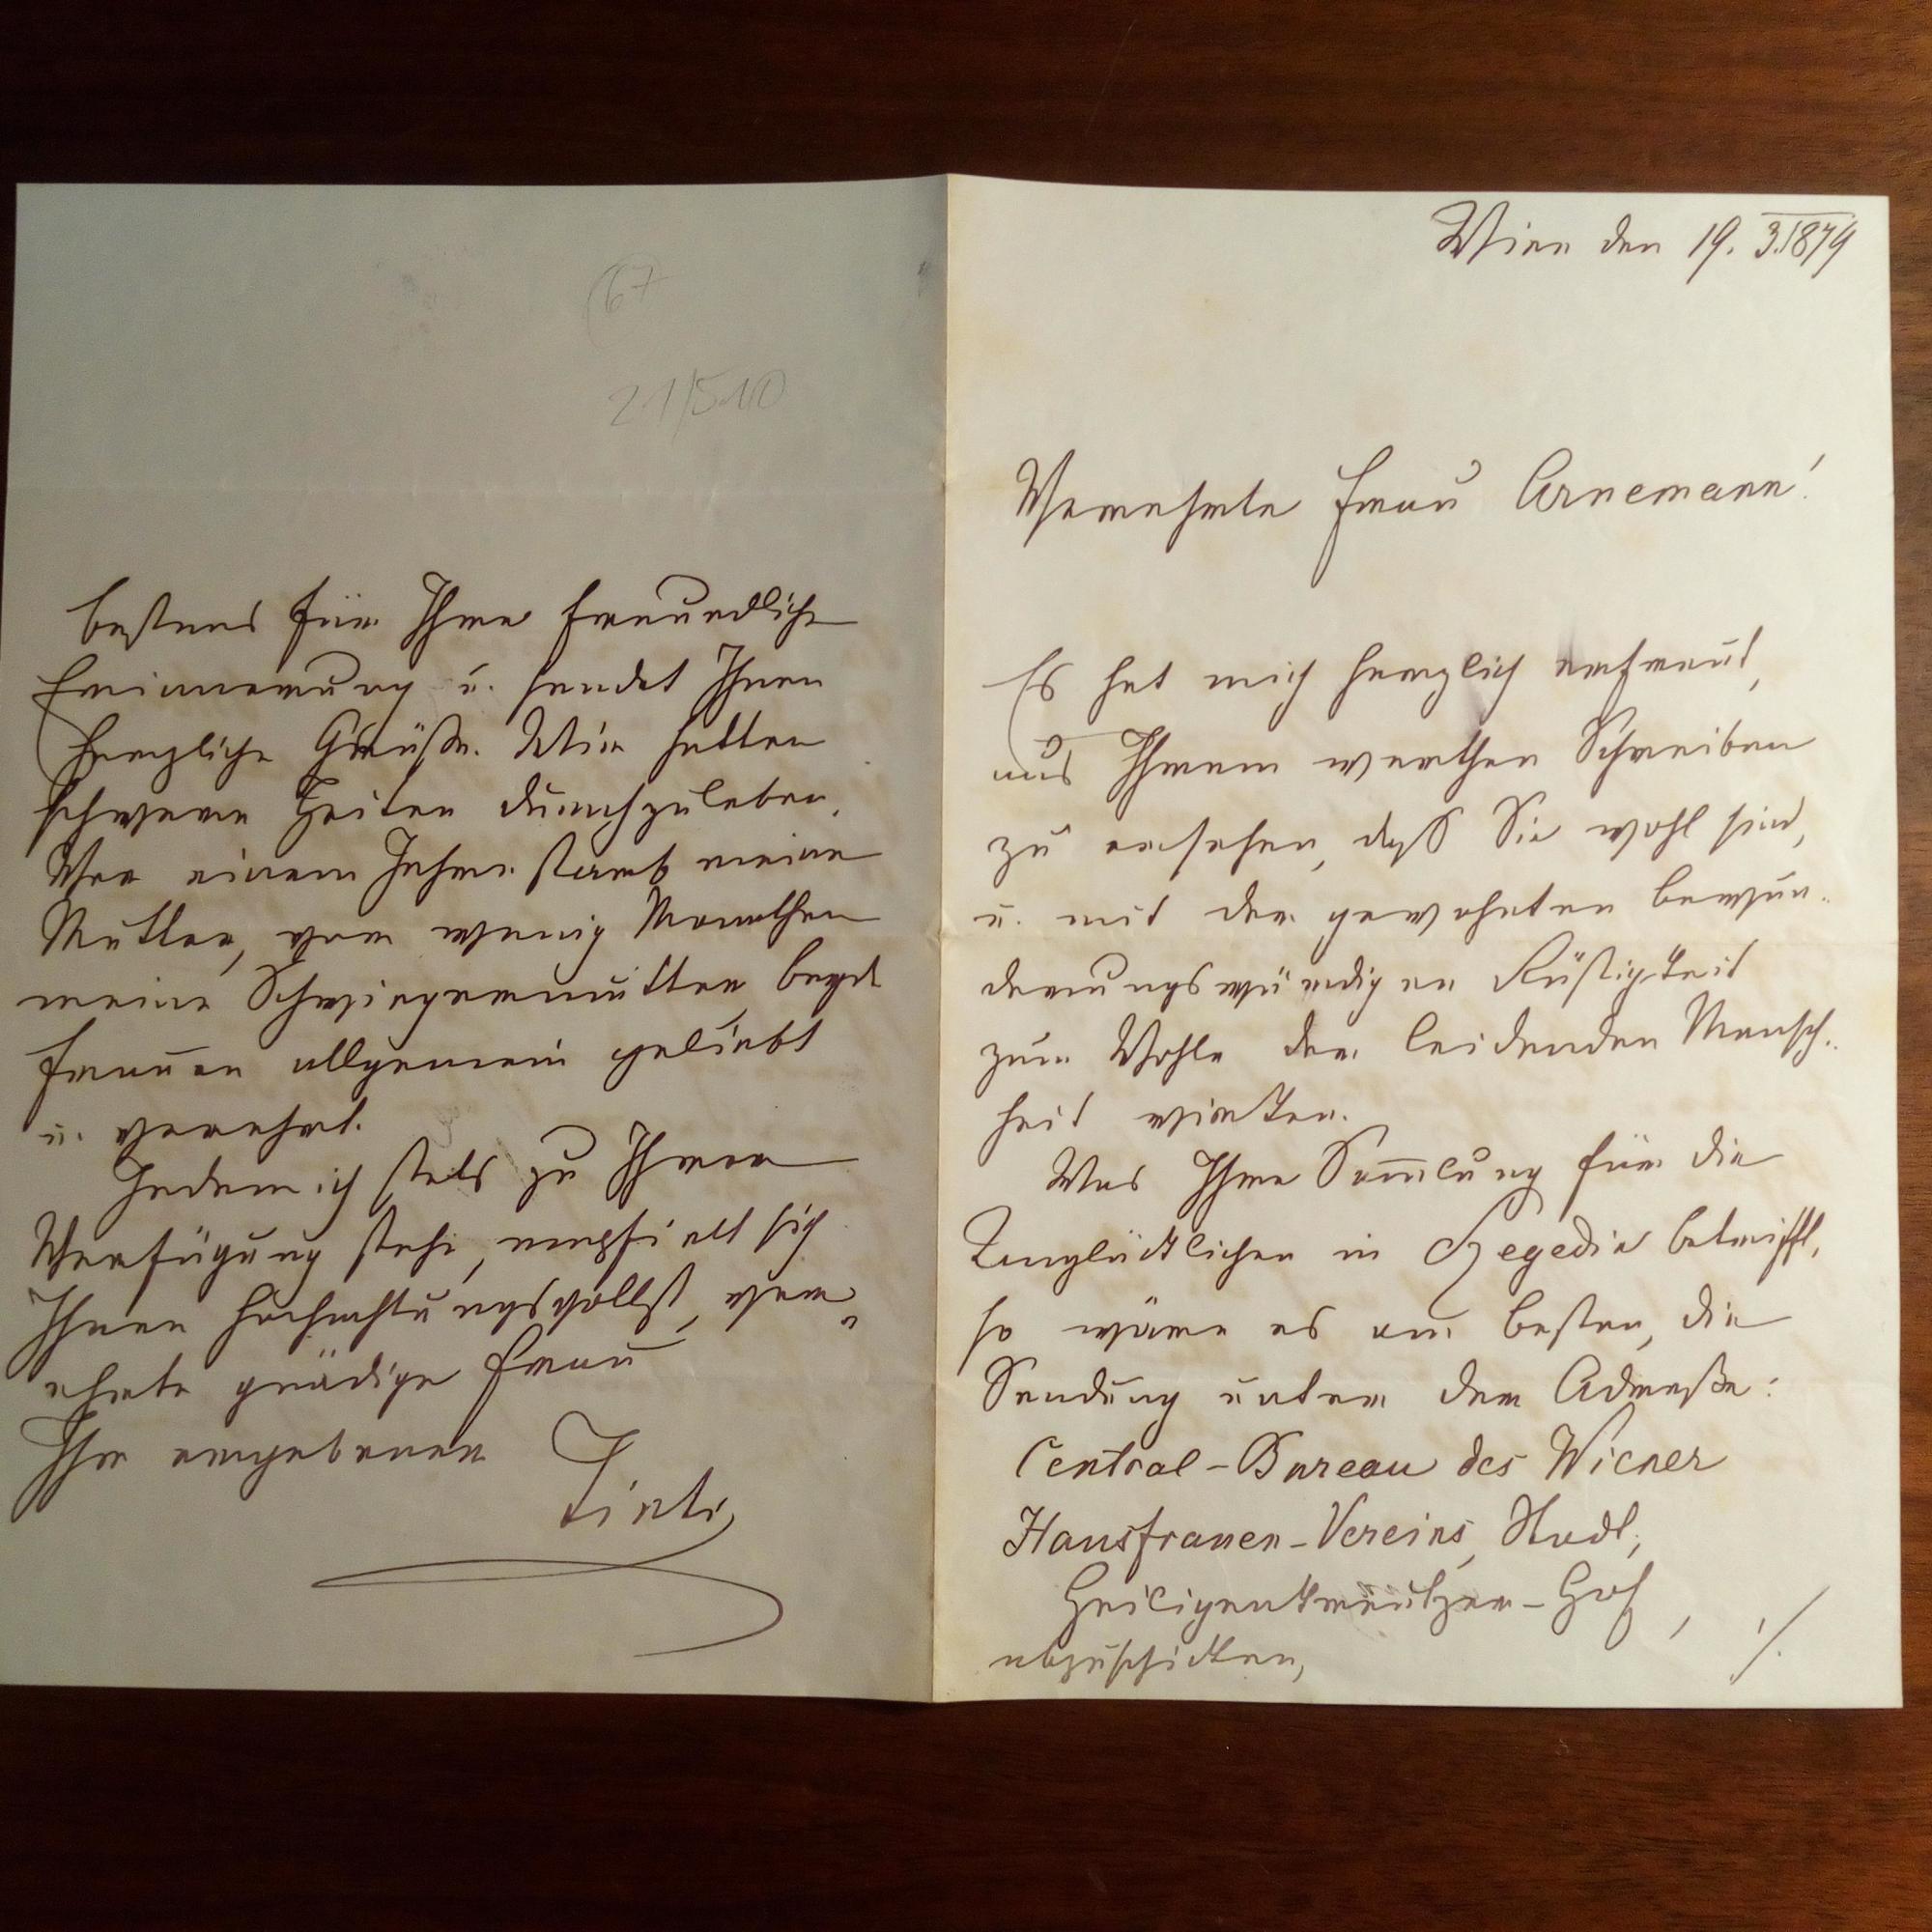 Wien den 19. 3. 1879
Verehrte Frau Arnemann!
Es hat mich herzlich erfreut,
aus Ihrem werthen Schreiben
zu ersehen, daß Sie wohl sind,
u. mit der gewohnten bewun-
derungswürdigen Rüstigkeit
zum Wohle der leidenden Mensch-
heit wirken.
Was Ihre Sammlung für die
Unglücklichen in Szegedin betrifft,
so wäre es am besten, die
Sendung unter der Adreße:
Central-Bureau des Wiener
Hausfrauen-Vereins, Stadt,
Heiligenkreutzer-Hof,
abzuschicken, ./.
67
21/510
bestens für Ihre freundliche
Erinnerung u. sendet Ihnen
herzliche Grüße. Wir hatten
schwere Zeiten durchzuleben.
Vor einem Jahre starb meine
Mutter, vor wenig Monathen
meine Schwiegermutter, beyde
Frauen allgemein geliebt
u. verehrt.
Indem ich stets zu Ihrer
Verfügung stehe, empfielt sich
Ihnen hochachtungsvollst, ver-
ehrte gnädige Frau
Ihr ergebener
Tinti